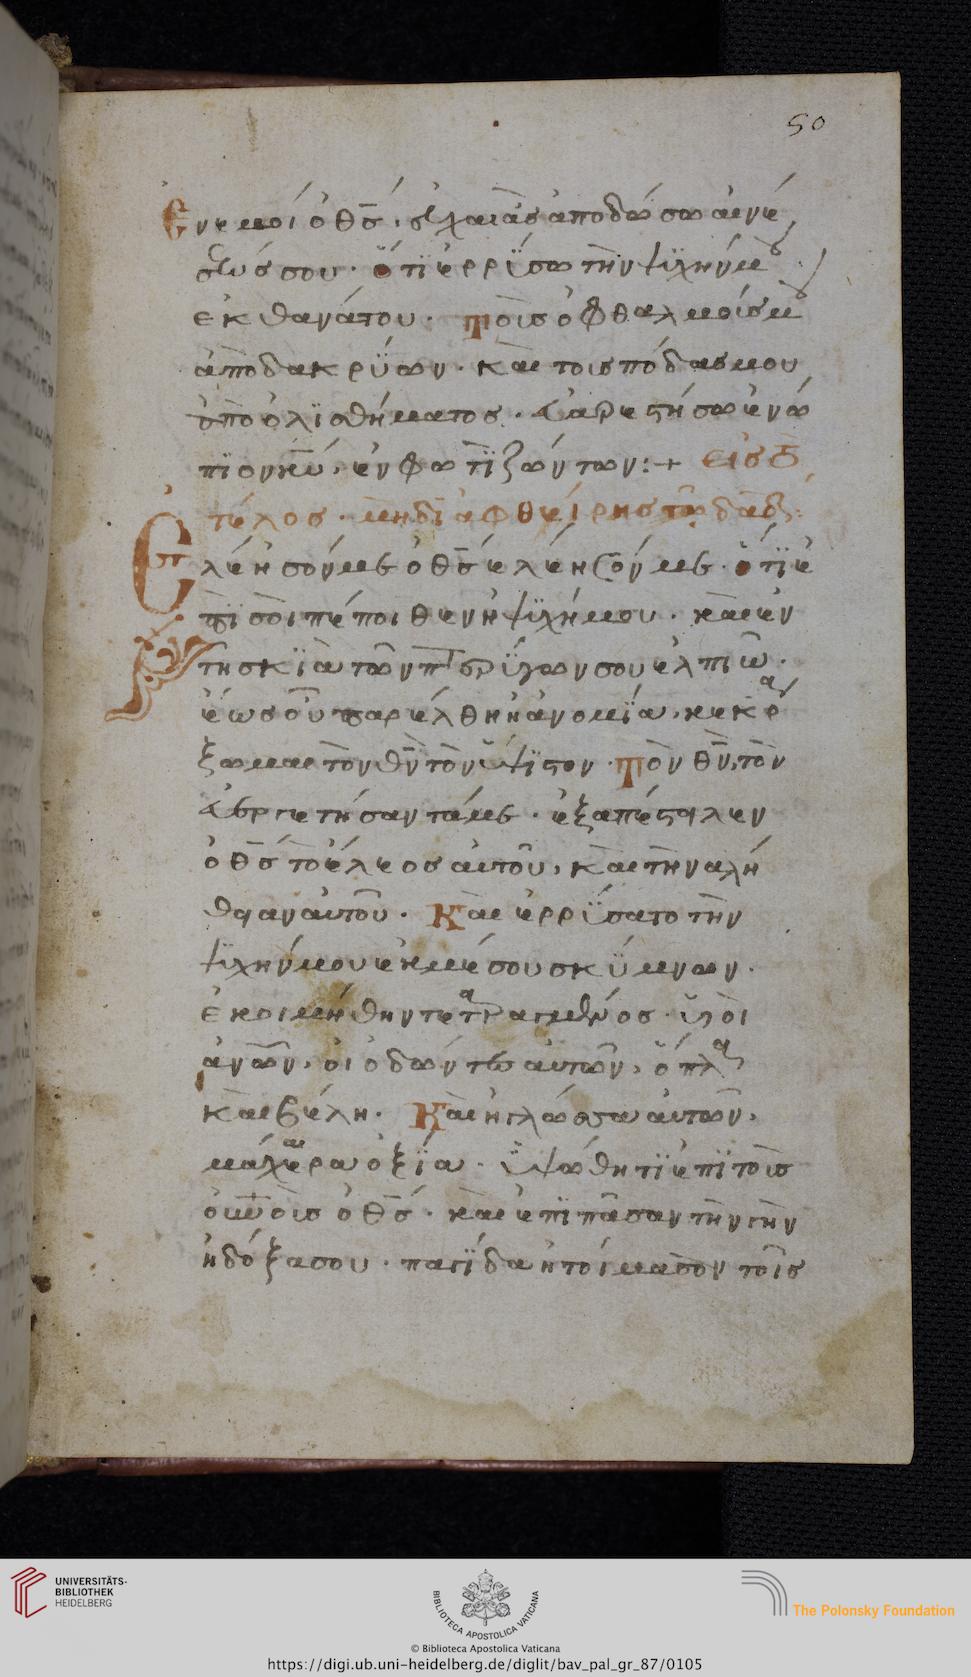 50
Ἐν ἐμοί ὁ θς̄, εὐχαι ἃς ἀποδώσω αἰνέ
σεώς σου· ὅτϊ ἐρρΰσω τὴν ψϋχήν μου
ἐκ θανάτου· Τοὺς ὀφθαλμούς μου
ἀπὸ δακρΰων· καὶ τοὺς πόδας μου
ἀπὸ ὀλϊσθήματος. εὐαρεστήσω ἐνώ
πϊον κῡ, ἐν φωτῒ ζώντων:+ εἰς τὸ
τέλος· μὴ διαφθείρης τῶ δαδ:
Ἐλέησόν με ὁ θς̄ ἐλέησόν με· ὅτϊ ἐ
πῒ σοὶ πέποιθεν ἡ ψϋχή μου. καὶ ἐν
τῆ σκϊᾶ τῶν πτερΰγων σου ἐλπιῶ·
ἕως οὗ παρέλθη ἡ ἀνομΐα, κεκρά
ξομαι τὸν θν̄ τὸν ὕψϊστον· Τὸν θν̄, τὸν
εὐεργετήσαντά με· ἐξαπέστειλεν
ὁ θς̄ τὸ ἔλεος αὐτοῦ, καὶ τὴν αλή
θειαν αὐτοῦ· Καὶ ἐρρΰσατο τὴν
ψϋχήν μου ἐκ μέσου σκΰμνων·
ἐκοιμήθην τεταραγμένος· ϋἱοὶ
ἀνῶν, οἱ ὀδόντες αὐτῶν, ὅπλα
καὶ βέλη· Καὶ ἡ γλῶσσα αὐτῶν,
μάχαιρα ὀξΐα· Ὑψώθητϊ ἐπῒ τοὺς
οὐνοὺς ὁ θς̄· καὶ ἐπῒ πᾶσαν τὴν γὴν
ἡ δόξα σου· παγΐδα ἡτοίμασαν τοῖς
UNIVERSITÄTS-
BIBLIOTHEK
HEIDELBERG
BIBLIOTECA APOSTOLICA VATICANA
The Polonsky Foundation
© Biblioteca Apostolica Vaticana
https://digi.ub.uni-heidelberg.de/diglit/bav_pal_gr_87/0105